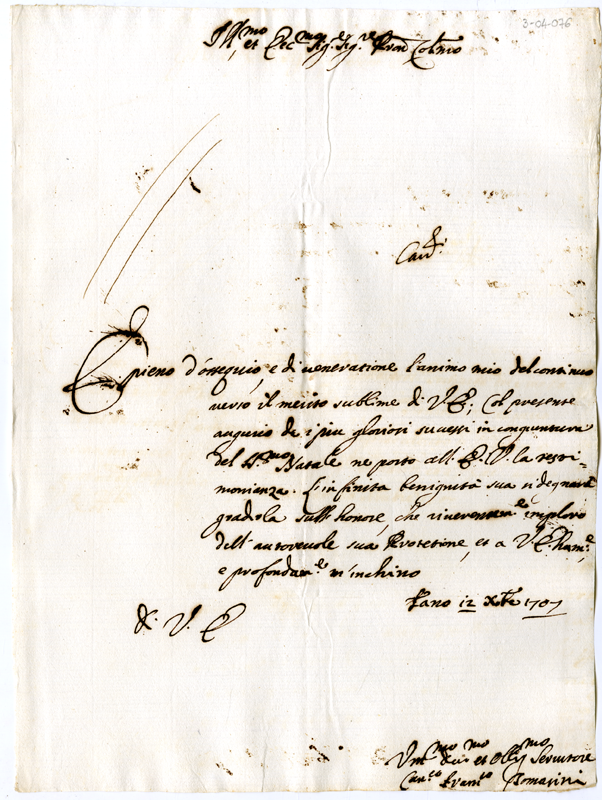 3-04-076
Ill.mo
et Ecc.mo Sig.r Sig.r e Pron Col.mo
Card.l
E pieno d'ossequio, e di veneratione l'animo mio del continuo
verso il merito sublime di V.E.; Col presente
augurio de i piu gloriosi sucessi in congiuntura
del S.mo Natale ne porto all'E.V. la testi-
monianza. L'infinita benignità sua si degnarà
gradirla sull'honore, che riverentem.e imploro
dell'autorevole sua Protetione, et a V.E. hum.e
e profondam.e m'inchino
Fano 12 Xbre 1707
Di V. E.
Um.mo Dev.mo et Obl.mo Servitore
Fran.co Tomasini